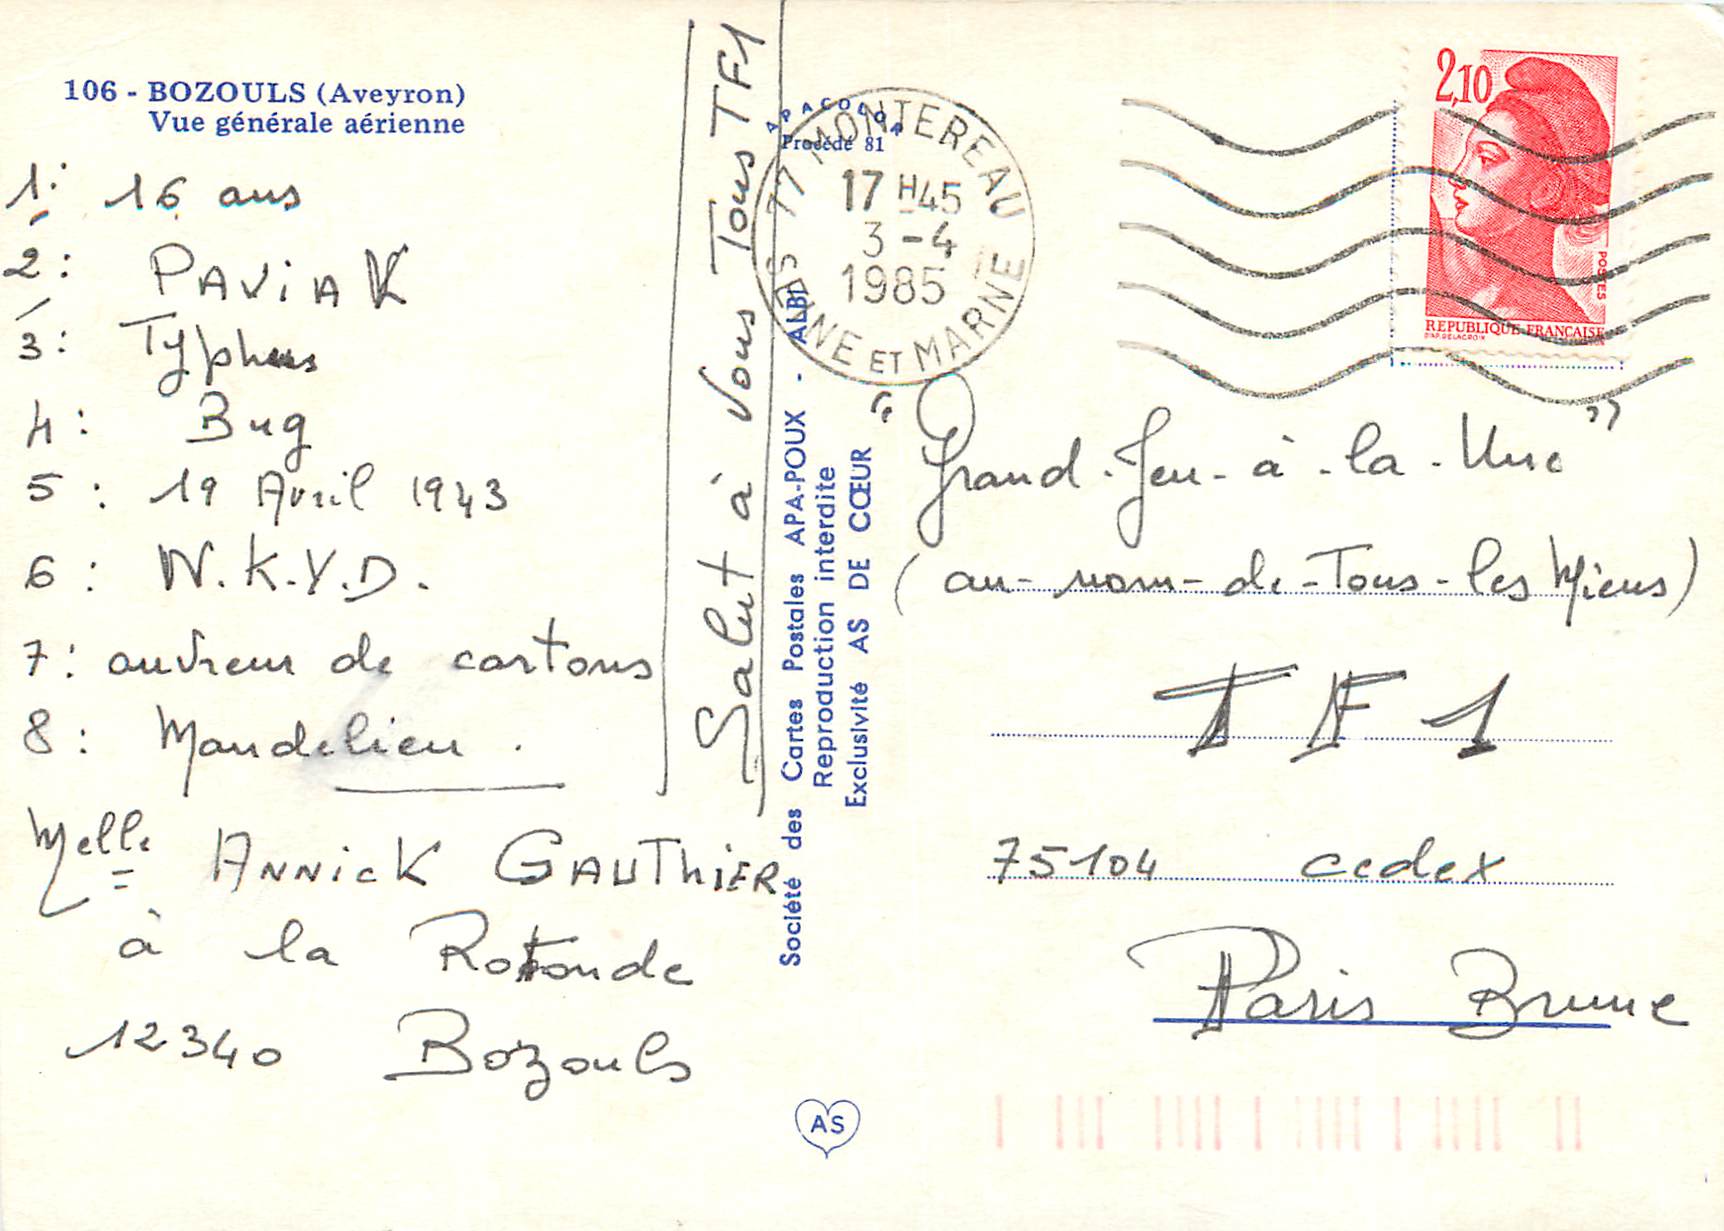 106 - BOZOULS (Aveyron)
Vue générale aérienne
1: 16 ans
2: PAViAK
3: Typhus
4: Bug
5: 19 Avril 1943
6: N.K.V.D.
7: ouvreur de cartons
8: Mandelieu.
Melle ANNicK GAUThiER
à la Rotonde
12340 Bozouls
Salut à Vous Tous TF1
APACOLOR
Procédé 81
Société des Cartes Postales APA-POUX - ALBI
Reproduction interdite
Exclusivité AS DE CŒUR
AS
77 MONTEREAU
17 H45
3-4
1985
SEINE ET MARNE
2,10
POSTES
REPUBLIQUE FRANCAISE
D'AP. DELACROIX
"Grand-Jeu-à-la-Une"
(au-nom-de-Tous-les Miens)
TF1
75104 cedex
Paris Brune